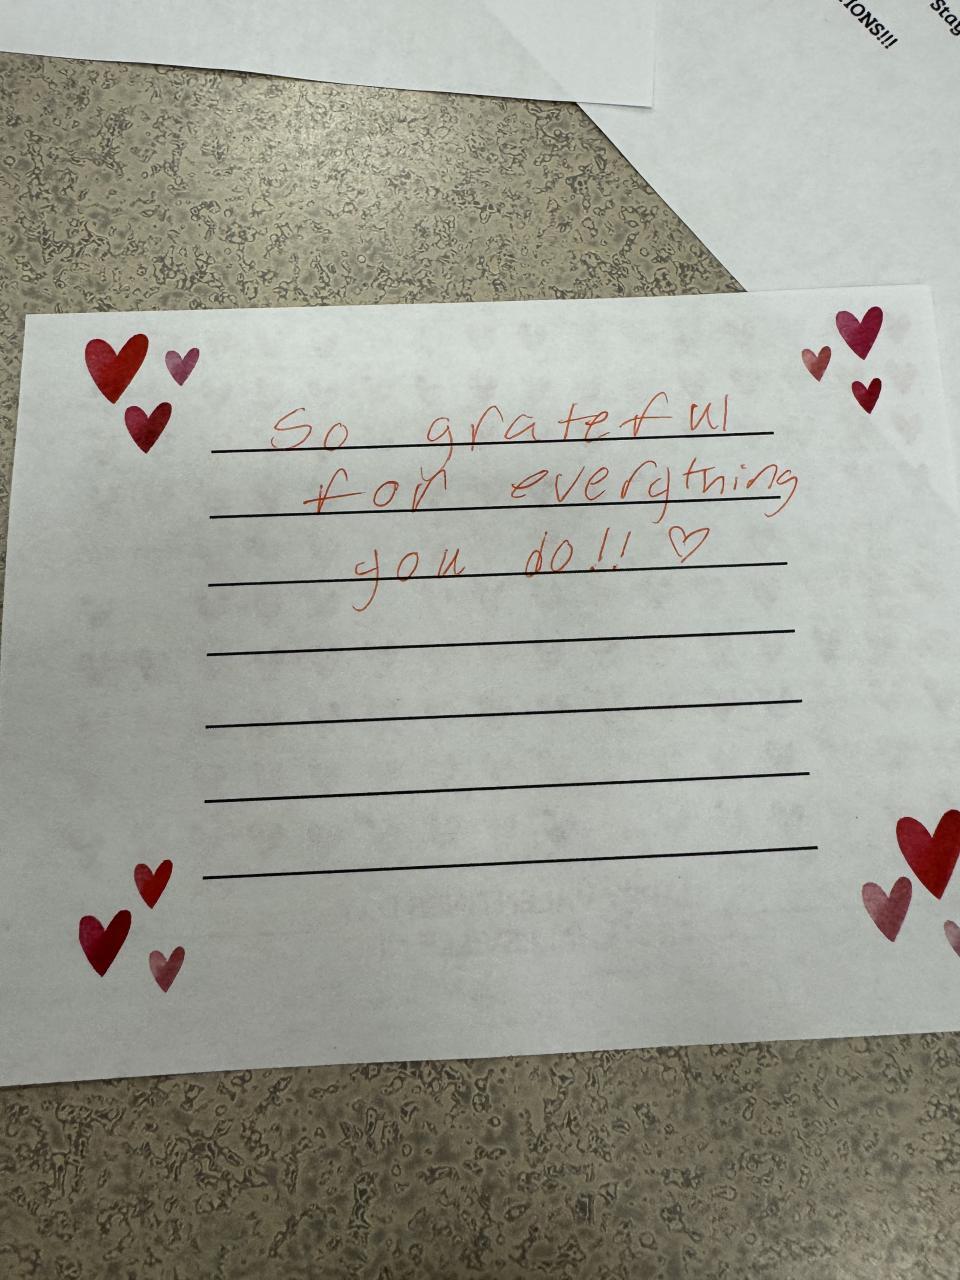 IONS!!!
Stay
So grateful
for everything
you do!! ♡